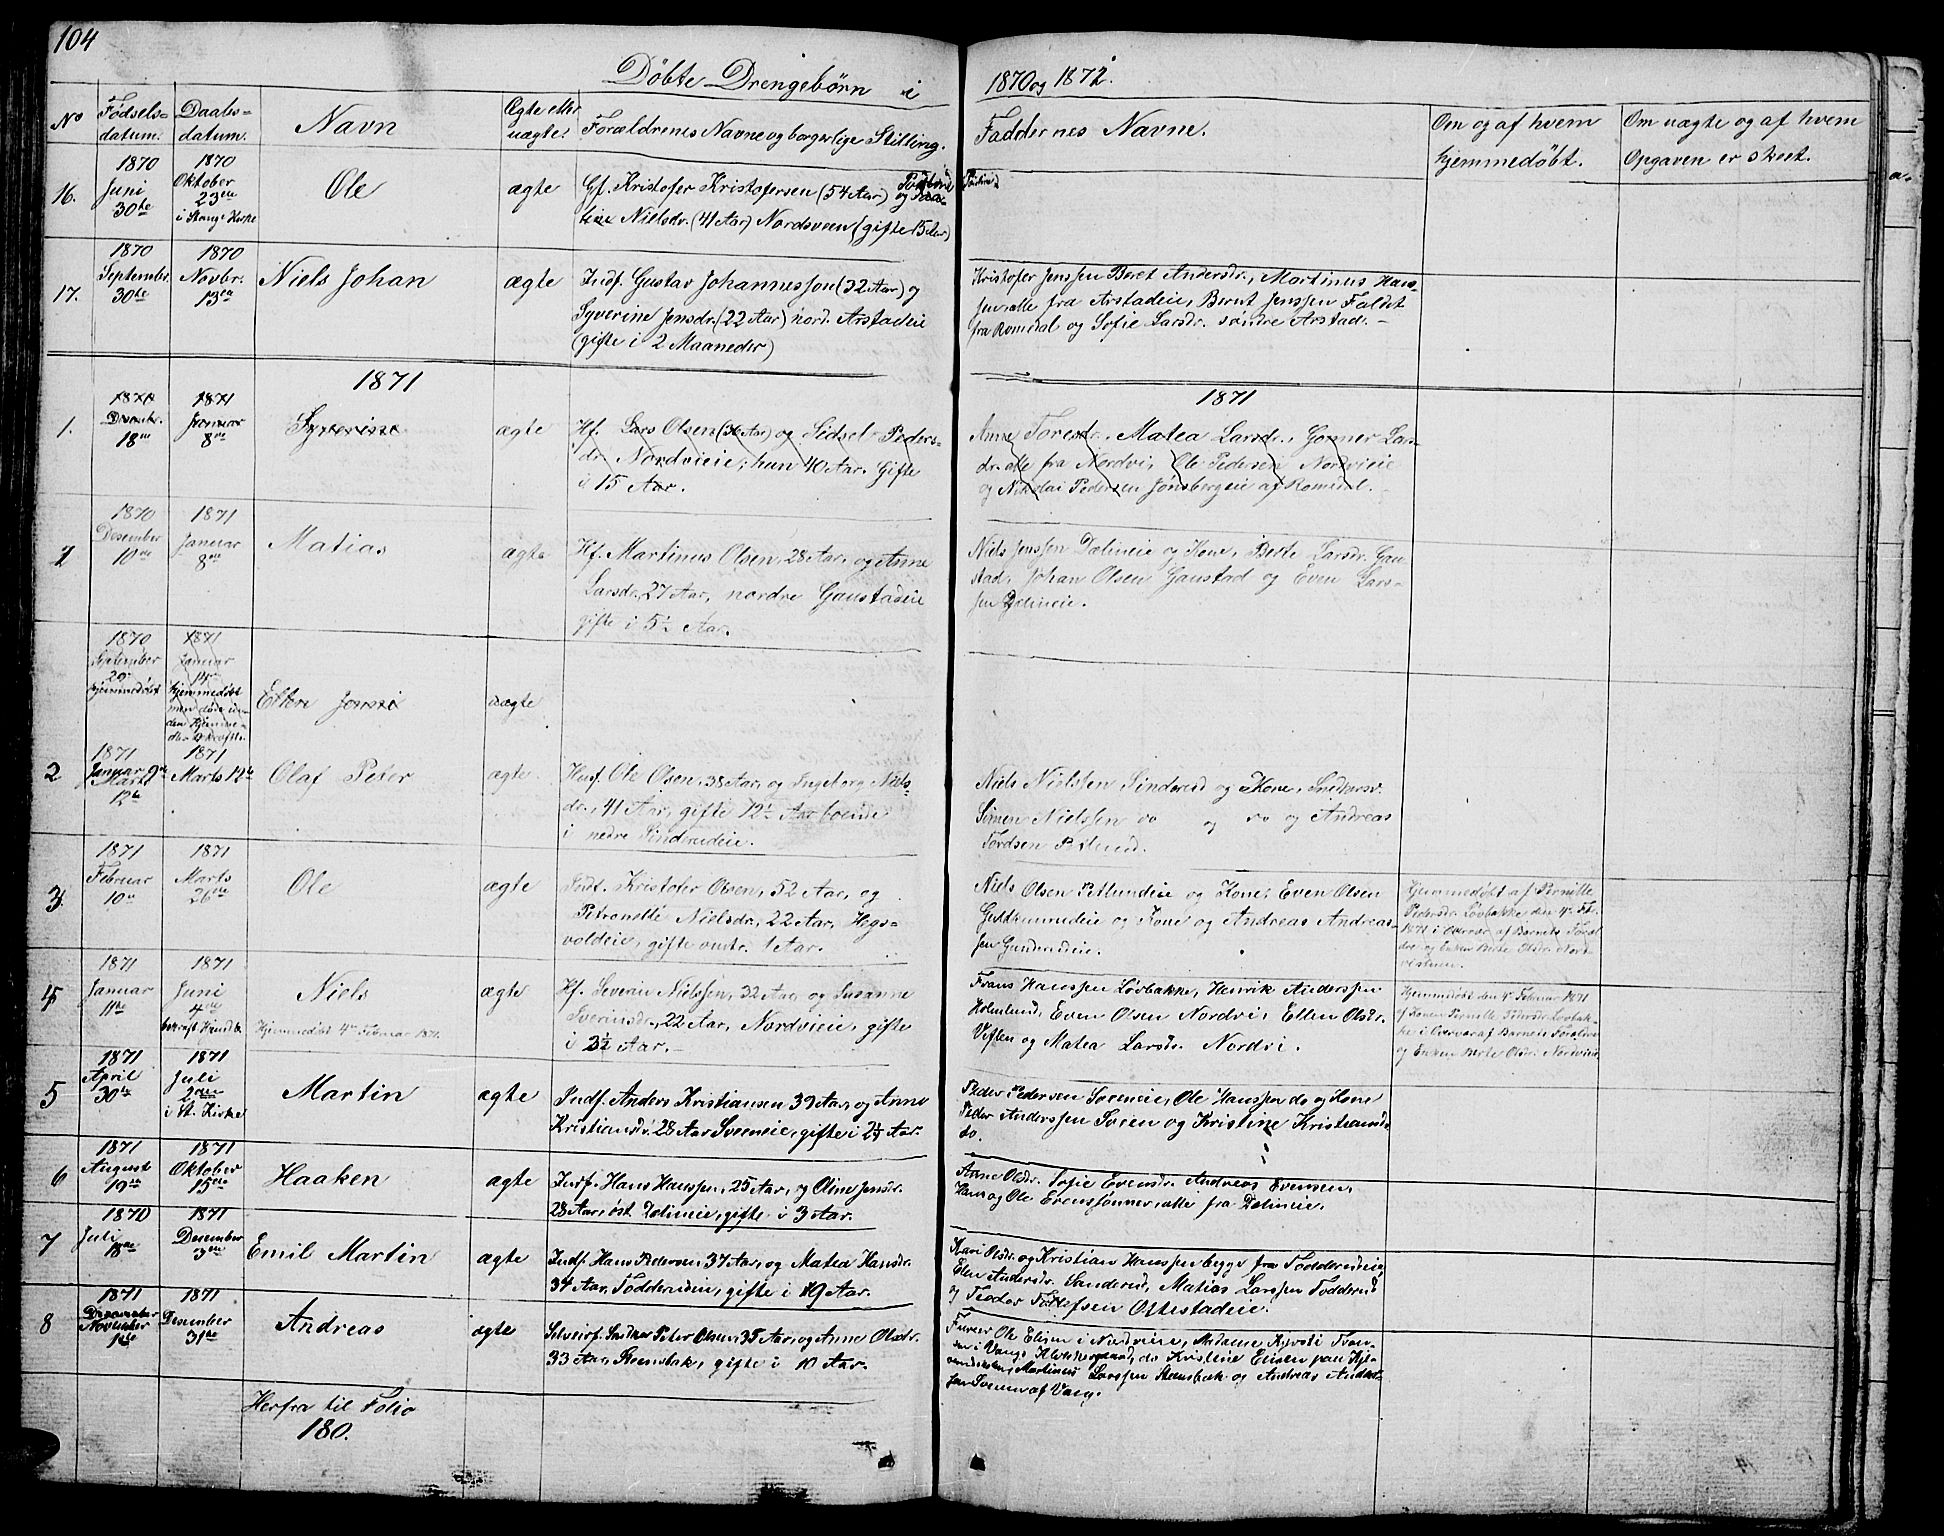 104
Døbte Drengebørn i 1870 og 1871.
No
Fødsels-
datum.
Daabs-
datum.
Navn
Ægte eller
uægte.
Forældrenes Navne og borgerlige Stilling.
Faddernes Navne.
Om og af hvem
hjemmedøbt.
Om uægte og af hvem
Opgaven er skeet.
16.
1870
Juni
30te
1870
Oktober
23de
i Stange Kirke
Ole
ægte
Gf. Kristofer Kristofersen (54 Aar) og
Nielsdr. (41 Aar) Nordsveen (gifte 15 Aar)
17.
1870
September
30te
1870
Novbr.
13de
Niels Johan
ægte
Indf. Gustav Johannessen (32 Aar) og
Syverine Jensdr. (22 Aar) nord. Arstadeie
(gifte i 2 Maaneder)
Kristofer Jenssen Beret Andersdr., Martinus Hans-
sen, alle fra Arstadeie, Bernt Jenssen Faldet
fra Romedal og Sofie Larsdr. søndre Arstad.
1871
1871
1.
1870
Desembr.
18de
1871
Januar
8de
Syverine
ægte
Hf. Lars Olsen (36 Aar) og Sidsel Peders-
dr. Nordvieie, hun 40 Aar. Gifte
i 15 Aar.
Anne Toresdr., Matea Larsdr., Gonner Lars-
dr. alle fra Nordvi, Ole Pedersen Nordvieie
og Nikolai Pedersen Jønsbergeie af Romedal.
1870
Desember
10de
1871
Januar
8de
Matias
ægte
Hf. Martinus Olsen, 28 Aar, og Anne
Larsdr., 27 Aar, nordre Gaustadeie
gifte i 5½ Aar.
Niels Jenssen Dælineie og Kone, Berte Larsdr. Gau-
stad, Johan Olsen Gaustad og Even Lars-
sen Dælineie.
1870
September
29
hjemmedøbt
1871
Januar
hjemmedøbt
Ellen
uægte
2
1871
Januar 9de
12te
1871
Marts 12te
Olaf Peter
ægte
Husf. Ole Olsen, 38 Aar, og Ingeborg Niels-
dr., 41 Aar, gifte 12½ Aar boende
i nedre Sinderudeie.
Niels Nielssen Sinderud og Kone,
Simen Nielssen do og do og Andreas
Tordsen
3.
1871
Februar
10de
1871
Marts
26de
Ole
ægte
Indf. Kristofer Olsen, 52 Aar, og
Petronelle Nielsdr., 22 Aar, Hegs-
voldeie, gifte omtr. 1 Aar.
Niels Olsen Petlundeie og Kone, Even Olsen
og Kone og Andreas Andreas-
sen Gunderudeie.
Hjemmedøbt af Pernille
Pedersdr. Løvbakke, den 4de Feb.
1871 i Overvær af Barnets Foræl-
dre og Enken Berte Olsdr. Nord-
4
1871
Januar
11te
1871
Juni
4de
Niels
Hjemmedøbt 4de Februar 1871.
ægte
Hf. Severin Nielssen, 32 Aar, og Susanne
Sverinsdr., 22 Aar, Nordvieie, gifte
i 3½ Aar.
Frans Hanssen Løvbakke, Henrik Anderssen
Holmlund, Even Olsen Nordvi, Ellen Olsdr.
Viflen og Matea Larsdr. Nordvi.
Hjemmedøbt den 4de Februar 1871
af Konen Pernille Pedersdr. Løvbak-
ke i Overvær af Barnets Forældre
og Enken Berte Olsdr. Nordvieie
5
1871
April
30te
1871
Juli
2den
i St. Kirke
Martin
ægte
Indf. Anders Kristiansen 39 Aar, og Anne
Kristiansdr. 28 Aar Sveeneie, gifte i 2½ Aar.
Peder Pedersen Sveneie, Ole Hanssen do og Kone
Peder Anderssen Sveen og Kristine Kristiansdr.
do.
6
1871
August
19de
1871
Oktober
15de
Haaken
ægte
Indf. Hans Hanssen, 25 Aar, og Oline Jensdr.
28 Aar, øst. Dælineie, gifte i 3 Aar.
Anne Olsdr. Sofie Evensdr. Andreas Evensen,
Hans og Ole Evenssønner, alle fra Dælineie.
7
1870
Juli
18de
1871
Desember
3die
Emil Martin
ægte
Indf. Hans Pedersen 37 Aar, og Matea Hansdr.
34 Aar, Tødderudeie, gifte i 19 Aar.
Kari Olsdr. og Kristian Hanssen begge fra Tødderudeie
Elen Andersdr. Sanderud, Matias Larssen Tødderud
og Teodor Tollefsen Ottestadeie.
8
1871
November
1ste
1871
Desember
31te
Andreas
ægte
Selveierf. Snedker Peter Olsen, 35 Aar, og Anne Olsdr.
33 Aar, Steensbak, gifte i 10 Aar.
Fureer Ole Elisen i Nordvieie, Madame
i Vangs do Kristine Elisen
Martinus Larssen Stensbæk og Andreas Anders-
sen Sveen af Vang.
Herfra til Folio
180.